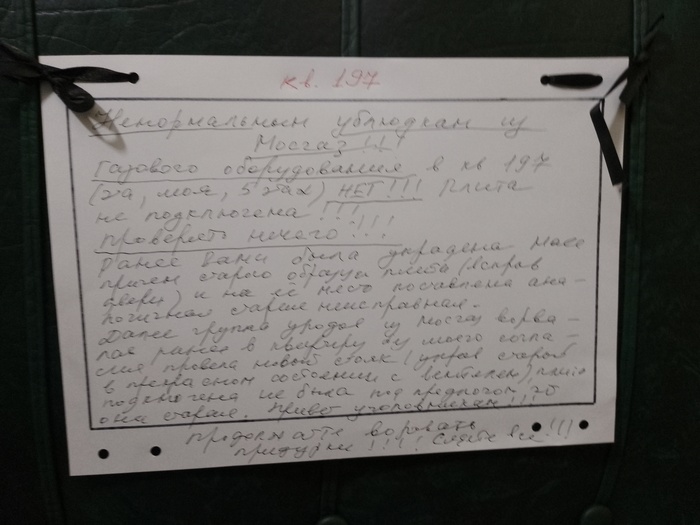 кв. 197
Ненормальным ублюдкам из
Мосгаз!!!
Газового оборудования в кв 197
(2а, моя, 5 этаж) НЕТ!!! Плита
не подключена!!!
проверять нечего!!!
Ранее Вами была украдена моя
причем старого образца плита (вскрыв
двери) и на её место поставлена ана-
логичная старая неисправная.
Далее группа уродов из Мосгаз ворва-
лая ранее в квартиру без моего согла-
сия провела новый стояк (украв старый
в прекрасном состоянии с вентилем), плита
подключена не была под предлогом, что
она старая. Привет уголовникам!!!
продолжайте воровать
придурки!!!! все!!!